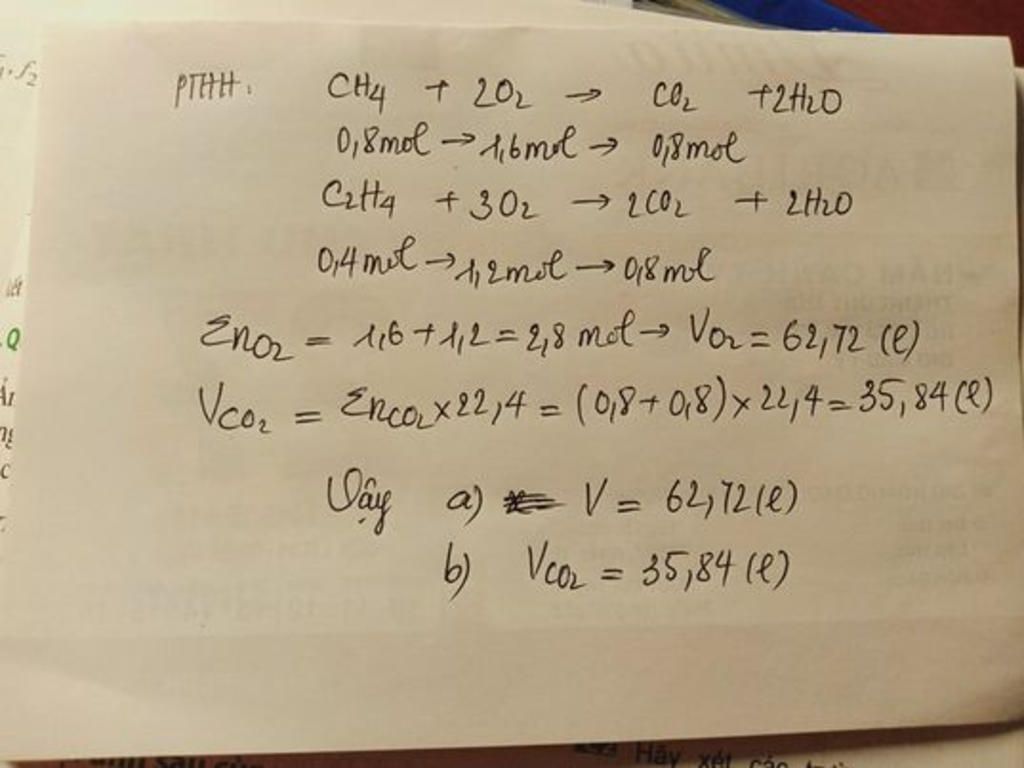 PTHH: CH4 + 2O2 → CO2 + 2H2O
0,8mol → 1,6mol → 0,8mol
C2H4 + 3O2 → 2CO2 + 2H2O
0,4mol → 1,2mol → 0,8mol
ΣnO2 = 1,6 + 1,2 = 2,8 mol → VO2 = 62,72 (l)
VCO2 = ΣnCO2 × 22,4 = (0,8 + 0,8) × 22,4 = 35,84 (l)
Vậy a) V = 62,72 (l)
b) VCO2 = 35,84 (l)
Hãy xét các